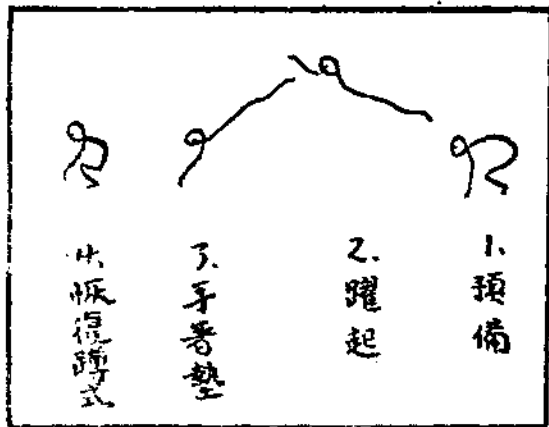 1.預備
2.躍起
3.手著墊
4.恢復蹲式